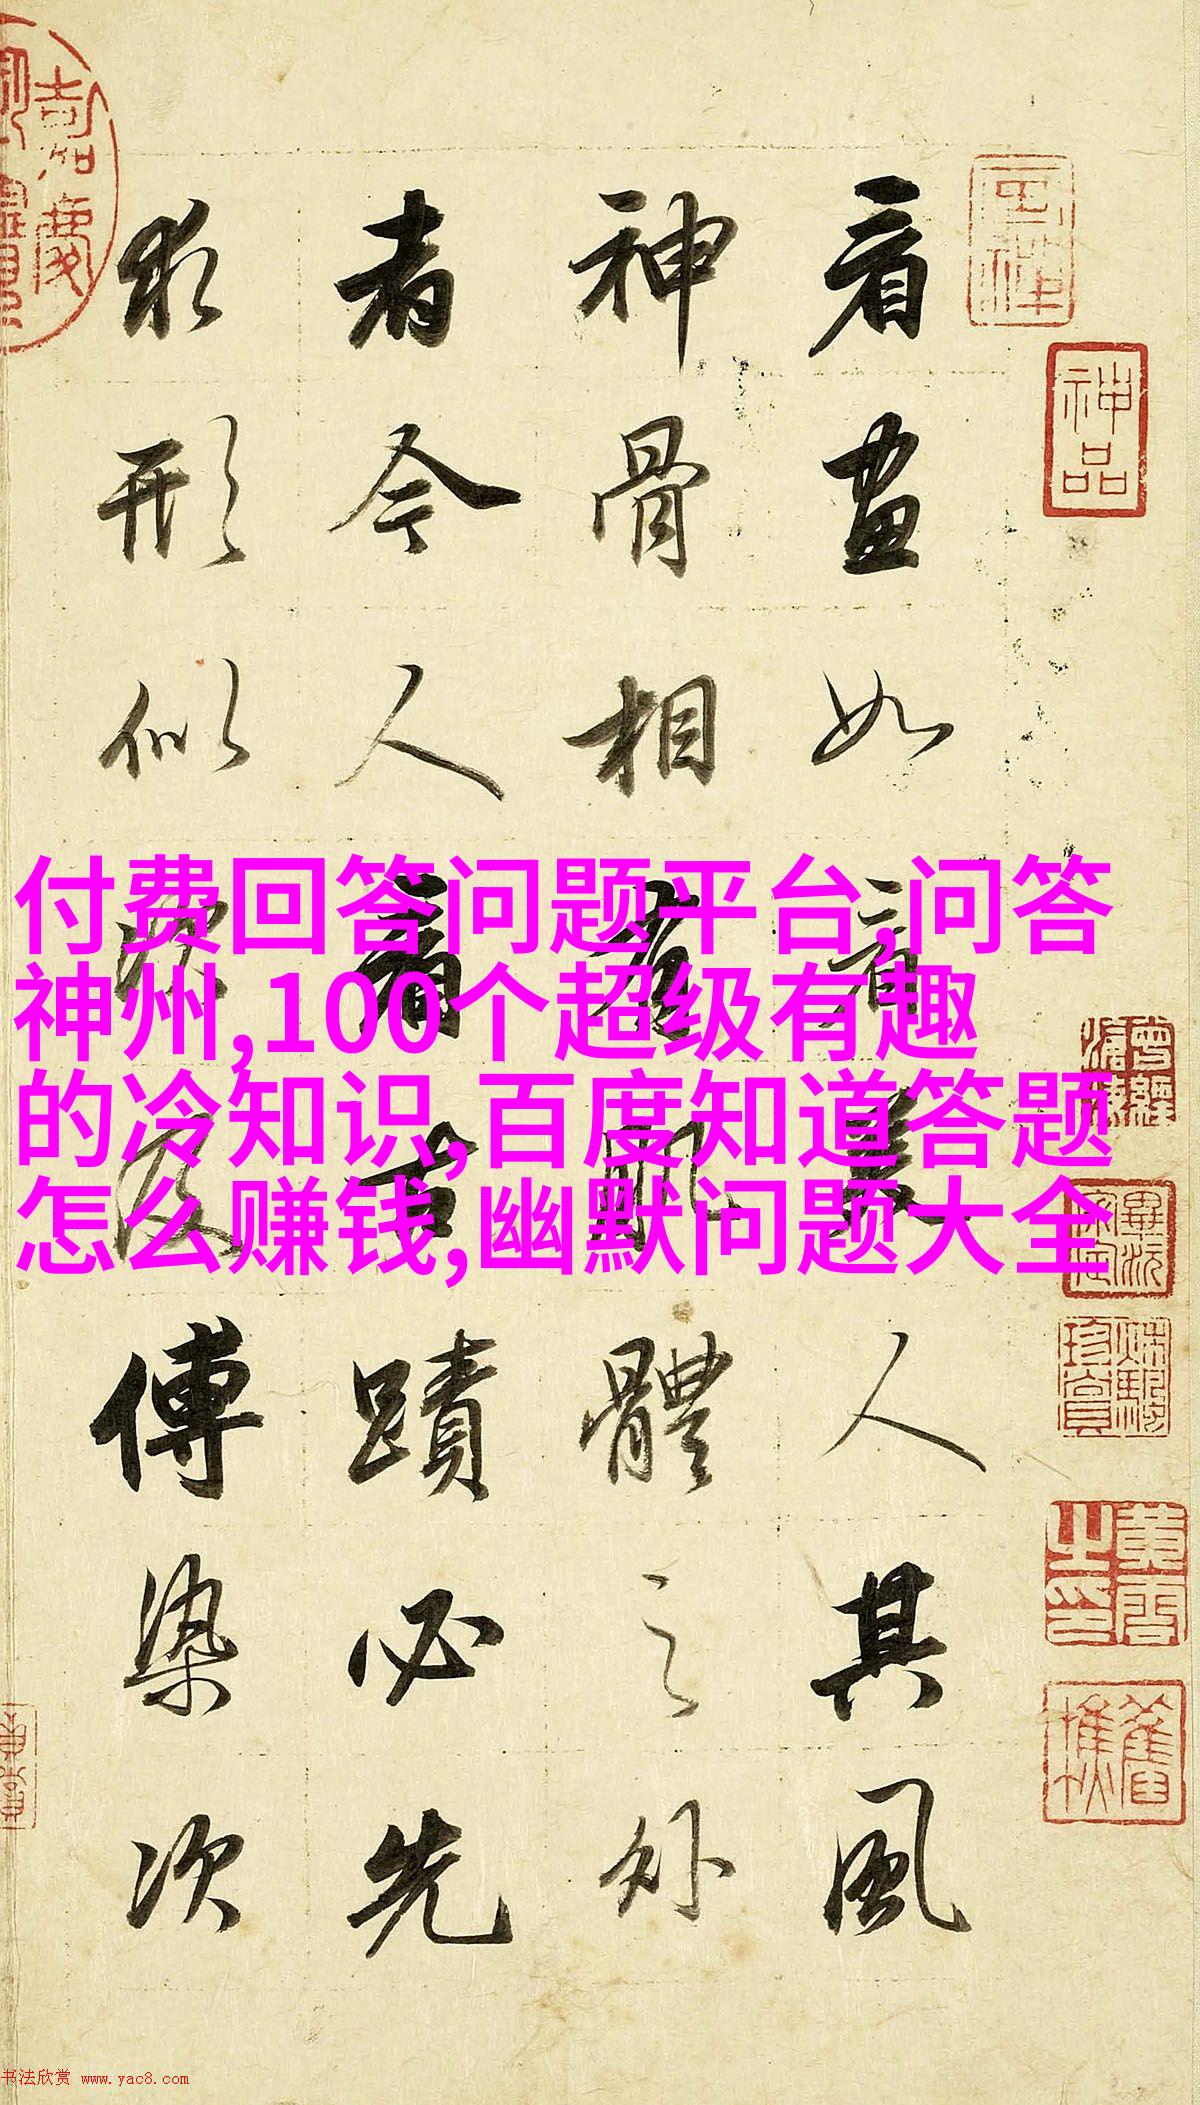 看畫如看美人其風
神骨相肌體之外
者今人看古蹟必先
求形似及傅染次
神品
付费回答问题平台,问答
神州,100个超级有趣
的冷知识,百度知道答题
怎么赚钱,幽默问题大全
书法欣赏 www.yac8.com